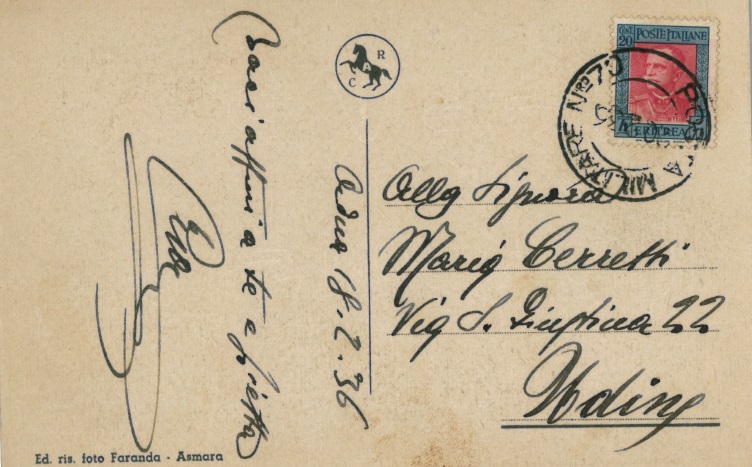 Baci affmi a te e Lietta
Adua 18.2.36
R
C
CENT. 20 POSTE ITALIANE
ERITREA
POSTA MILITARE No 70
Alla Signora
Maria Cerretti
Via S. Giustina 22
Udine
Ed. ris. foto Faranda - Asmara